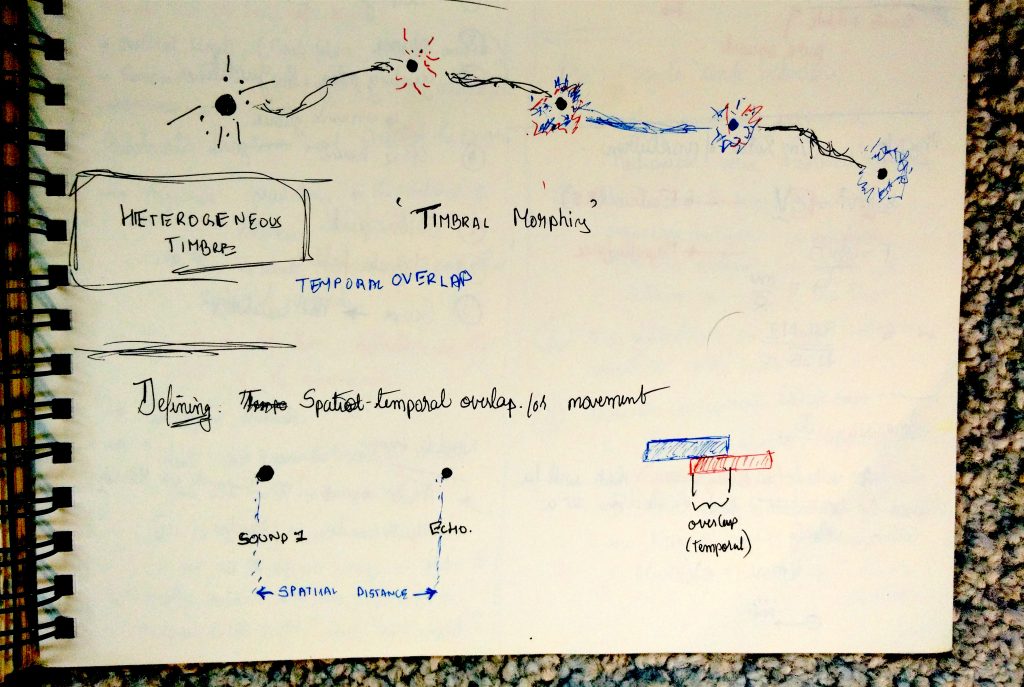 HETEROGENEOUS
TIMBRE
"TIMBRAL Morphing"
TEMPORAL OVERLAP
Defining: Tempo Spatio-temporal overlap for movement
SOUND 1
ECHO.
SPATIAL DISTANCE
overlap
(temporal)